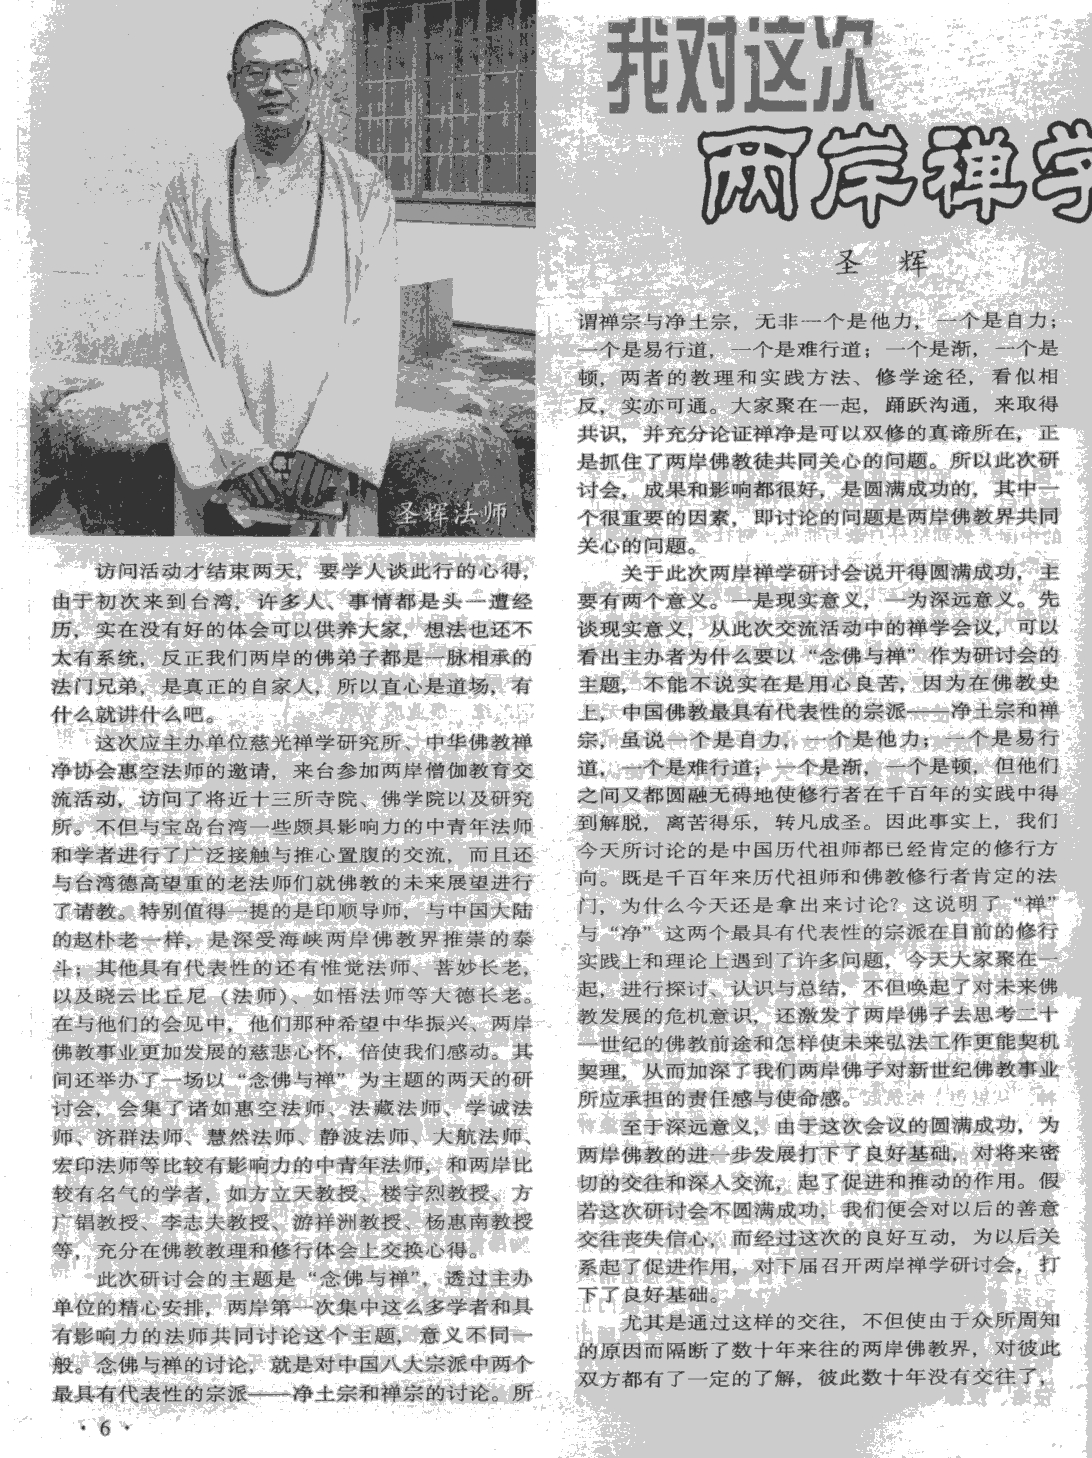 我对这次
两岸禅学
圣 辉
圣辉法师
访问活动才结束两天，要学人谈此行的心得，
由于初次来到台湾，许多人、事情都是头一遭经
历，实在没有好的体会可以供养大家，想法也还不
太有系统，反正我们两岸的佛弟子都是一脉相承的
法门兄弟，是真正的自家人，所以直心是道场，有
什么就讲什么吧。
这次应主办单位慈光禅学研究所、中华佛教禅
净协会惠空法师的邀请，来台参加两岸僧伽教育交
流活动，访问了将近十三所寺院、佛学院以及研究
所。不但与宝岛台湾一些颇具影响力的中青年法师
和学者进行了广泛接触与推心置腹的交流，而且还
与台湾德高望重的老法师们就佛教的未来展望进行
了请教。特别值得一提的是印顺导师，与中国大陆
的赵朴老一样，是深受海峡两岸佛教界推崇的泰
斗；其他具有代表性的还有惟觉法师、菩妙长老，
以及晓云比丘尼（法师）、如悟法师等大德长老。
在与他们的会见中，他们那种希望中华振兴、两岸
佛教事业更加发展的慈悲心怀，倍使我们感动。其
间还举办了一场以“念佛与禅”为主题的两天的研
讨会，会集了诸如惠空法师、法藏法师、学诚法
师、济群法师、慧然法师、静波法师、大航法师、
宏印法师等比较有影响力的中青年法师，和两岸比
较有名气的学者，如方立天教授、楼宇烈教授、方
广锠教授、李志夫教授、游祥洲教授、杨惠南教授
等，充分在佛教教理和修行体会上交换心得。
此次研讨会的主题是“念佛与禅”，透过主办
单位的精心安排，两岸第一次集中这么多学者和具
有影响力的法师共同讨论这个主题，意义不同一
般。念佛与禅的讨论，就是对中国八大宗派中两个
最具有代表性的宗派——净土宗和禅宗的讨论。所
谓禅宗与净土宗，无非一个是他力，一个是自力；
一个是易行道，一个是难行道；一个是渐，一个是
顿，两者的教理和实践方法、修学途径，看似相
反，实亦可通。大家聚在一起，踊跃沟通，来取得
共识，并充分论证禅净是可以双修的真谛所在，正
是抓住了两岸佛教徒共同关心的问题。所以此次研
讨会，成果和影响都很好，是圆满成功的，其中一
个很重要的因素，即讨论的问题是两岸佛教界共同
关心的问题。
关于此次两岸禅学研讨会说开得圆满成功，主
要有两个意义。一是现实意义，一为深远意义。先
谈现实意义，从此次交流活动中的禅学会议，可以
看出主办者为什么要以“念佛与禅”作为研讨会的
主题，不能不说实在是用心良苦，因为在佛教史
上，中国佛教最具有代表性的宗派——净土宗和禅
宗，虽说一个是自力，一个是他力；一个是易行
道，一个是难行道；一个是渐，一个是顿，但他们
之间又都圆融无碍地使修行者在千百年的实践中得
到解脱，离苦得乐，转凡成圣。因此事实上，我们
今天所讨论的是中国历代祖师都已经肯定的修行方
向。既是千百年来历代祖师和佛教修行者肯定的法
门，为什么今天还是拿出来讨论？这说明了“禅”
与“净”这两个最具有代表性的宗派在目前的修行
实践上和理论上遇到了许多问题，今天大家聚在一
起，进行探讨、认识与总结，不但唤起了对未来佛
教发展的危机意识，还激发了两岸佛子去思考二十
一世纪的佛教前途和怎样使未来弘法工作更能契机
契理，从而加深了我们两岸佛子对新世纪佛教事业
所应承担的责任感与使命感。
至于深远意义，由于这次会议的圆满成功，为
两岸佛教的进一步发展打下了良好基础，对将来密
切的交往和深入交流，起了促进和推动的作用。假
若这次研讨会不圆满成功，我们便会对以后的善意
交往丧失信心，而经过这次的良好互动，为以后关
系起了促进作用，对下届召开两岸禅学研讨会，打
下了良好基础。
尤其是通过这样的交往，不但使由于众所周知
的原因而隔断了数十年来往的两岸佛教界，对彼此
双方都有了一定的了解，彼此数十年没有交往了，
· 6 ·